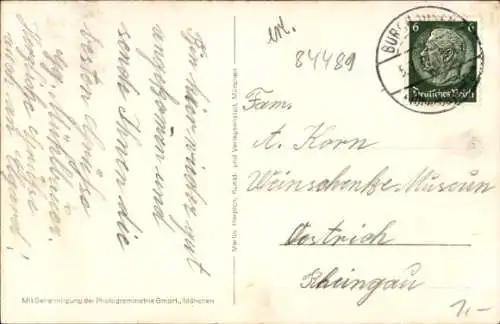 Bin hier wieder gut
angekommen und
sende Ihnen die
besten Grüsse
Herzliche Grüsse
auch an
Mit Genehmigung der Photogrammetrie GmbH., München
Martin Herpich, Kunst- und Verlagsanstalt, München
84489
6 6
Deutsches Reich
Fam.
A. Korn
Weinschenke-Museum
Oestrich
Rheingau
1,-